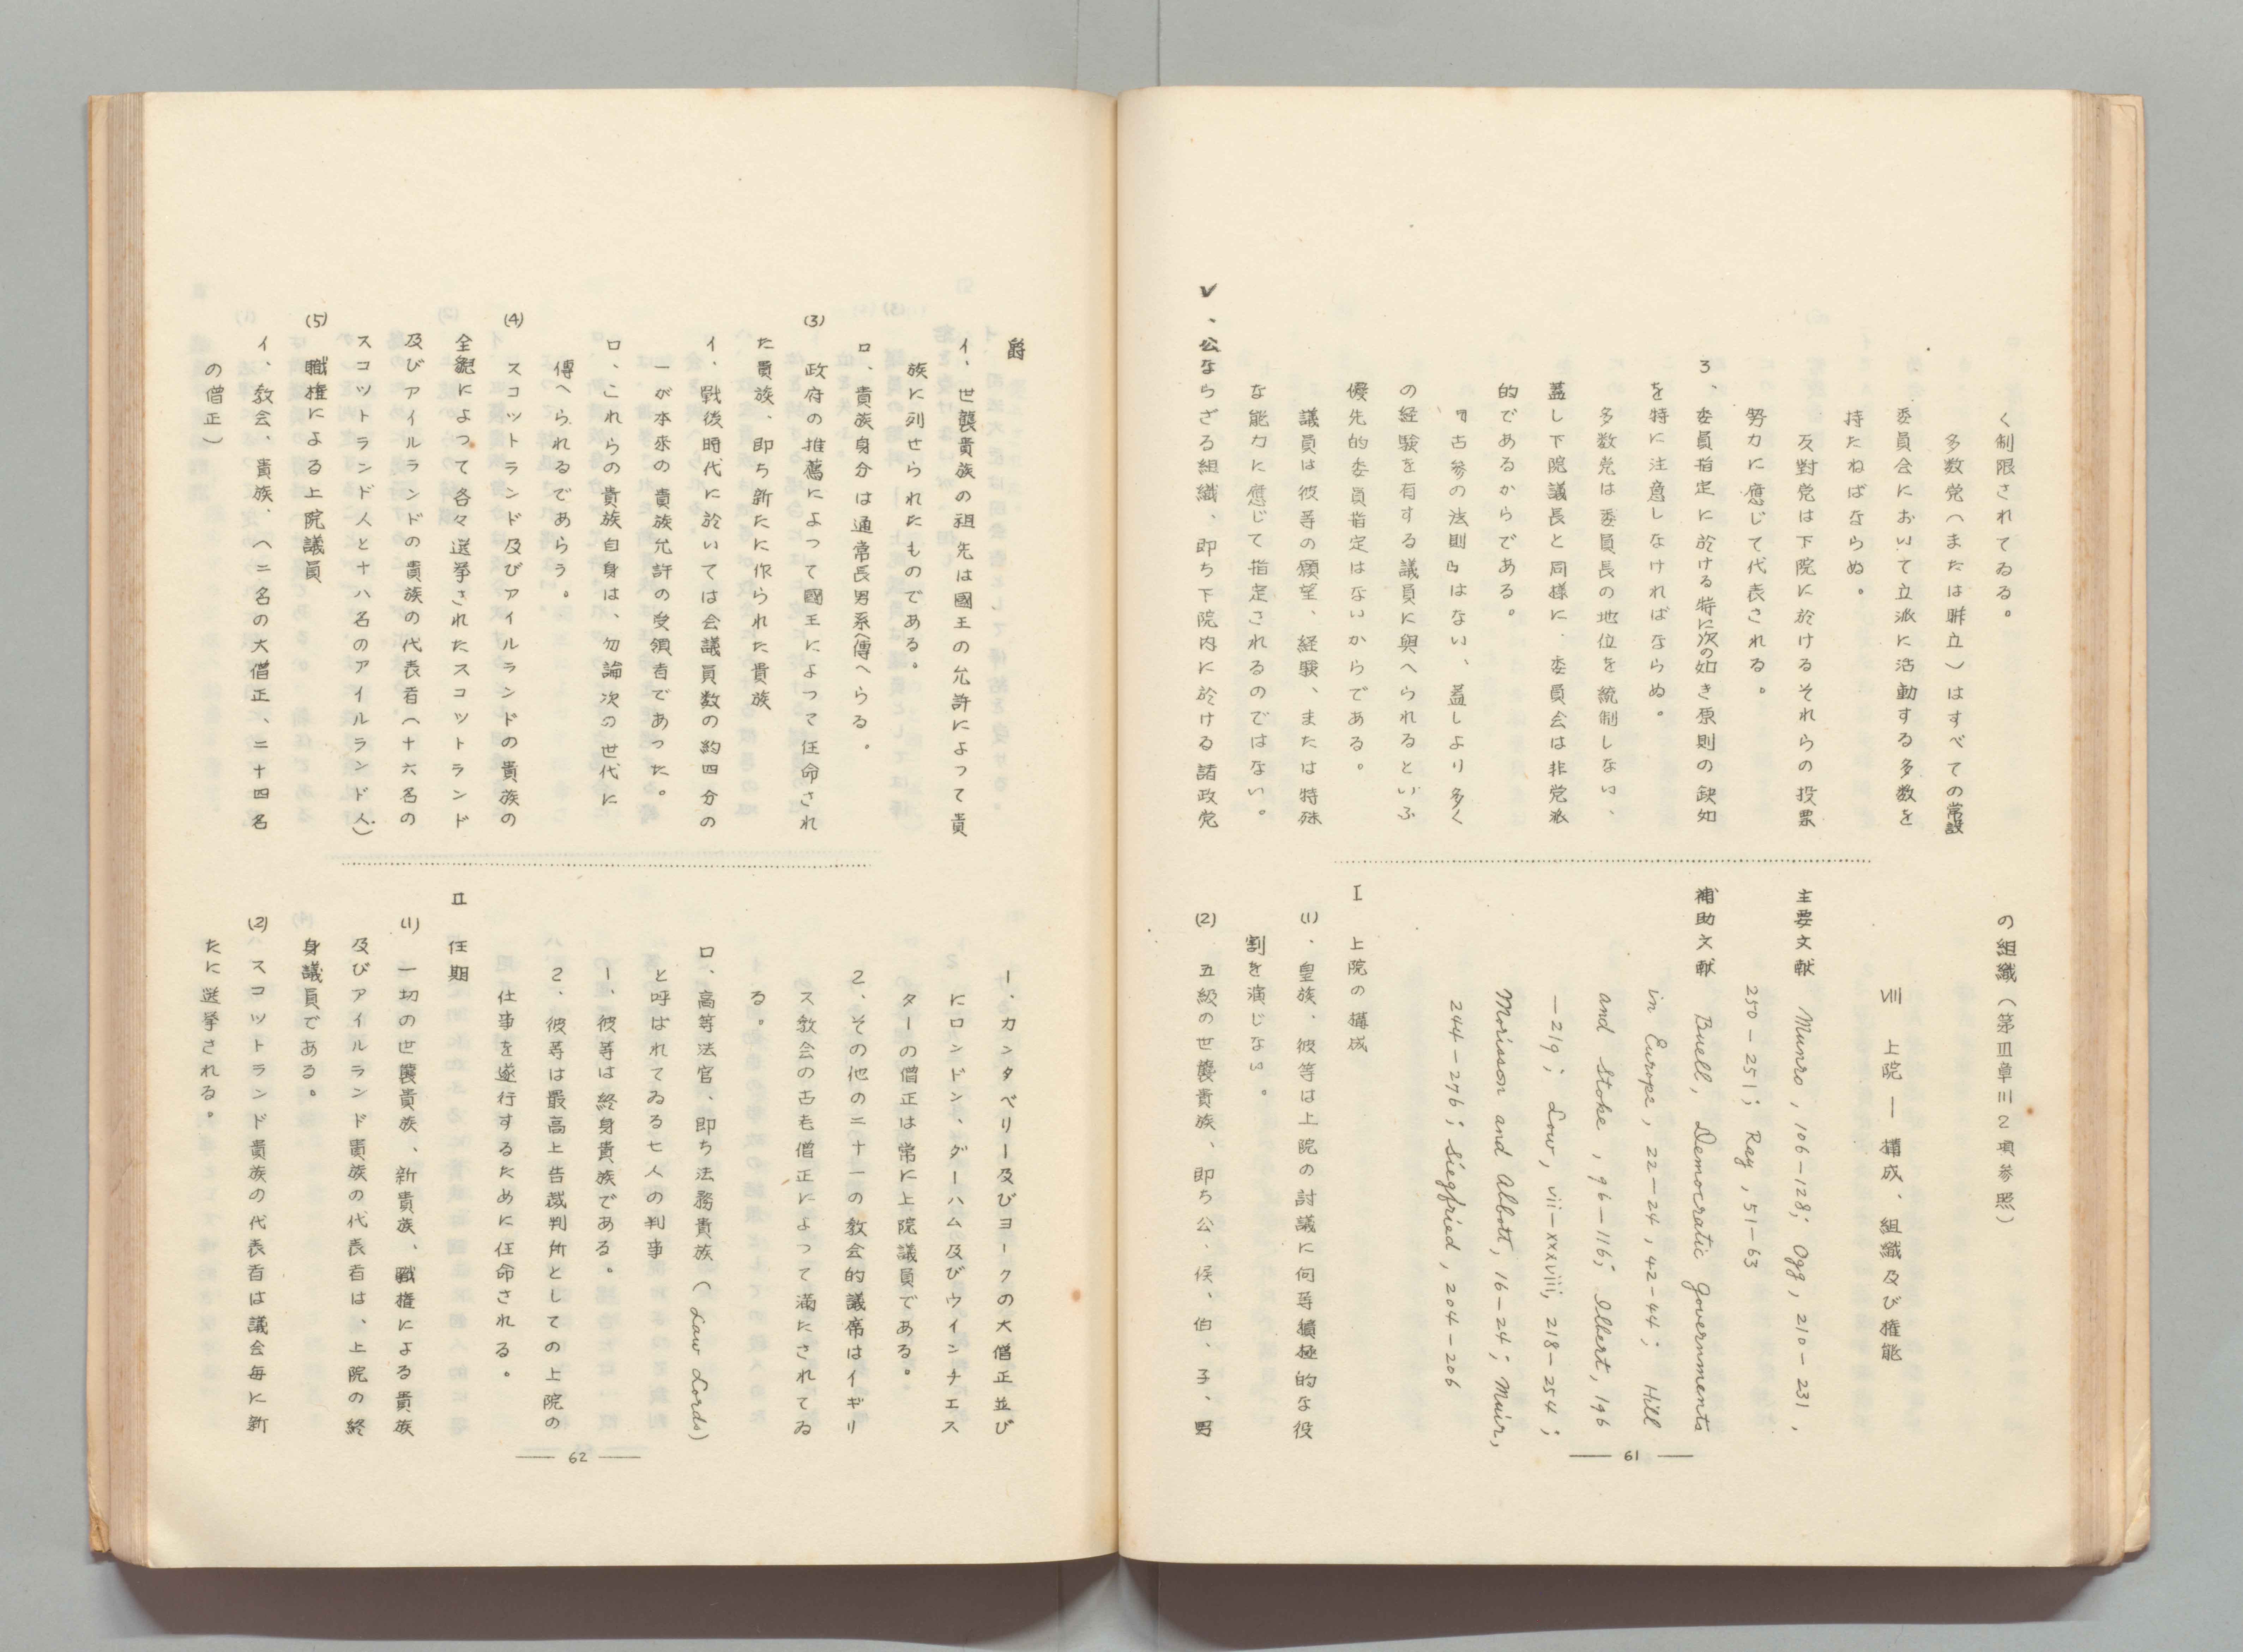 く制限されてゐる。
多数党（または聯立）はすべての常設
委員会において立派に活動する多数を
持たねばならぬ。
反對党は下院に於けるそれらの投票
努力に應じて代表される。
3、委員指定に於ける特に次の如き原則の缺如
を特に注意しなければならぬ。
多数党は委員長の地位を統制しない、
蓋し下院議長と同様に、委員会は非党派
的であるからである。
『古参の法則』はない、蓋しより多く
の経験を有する議員に與へられるといふ
優先的委員指定はないからである。
議員は彼等の願望、経験、または特殊
な能力に應じて指定されるのではない。
V、公ならざる組織、即ち下院内に於ける諸政党
の組織（第Ⅲ章Ⅲ2項参照）
Ⅷ 上院―構成、組織及び権能
主要文献 Munro, 106-128; Ogg, 210-231,
250-251; Ray, 51-63
補助文献 Buell, Democratic Governments
in Europe, 22-24, 42-44; Hill
and Stoke, 96-116; Ilbert, 196
-219; Low, vii-xxxviii, 218-254;
Morisson and Abbott, 16-24; Muir,
244-276; Siegfried, 204-206
Ⅰ 上院の構成
(1)、皇族、彼等は上院の討議に何等積極的な役
割を演じない。
(2) 五級の世襲貴族、即ち公、侯、伯、子、男
— 61 —
爵
イ、世襲貴族の祖先は國王の允許によって貴
族に列せられたものである。
ロ、貴族身分は通常長男系へ傳へらる。
(3) 政府の推薦によって國王によって任命され
た貴族、即ち新たに作られた貴族
イ、戰後時代に於いては会議員数の約四分の
一が本来の貴族允許の受領者であった。
ロ、これらの貴族自身は、勿論次の世代に
傳へられるであらう。
(4) スコットランド及びアイルランドの貴族の
全範によって各々選挙されたスコットランド
及びアイルランドの貴族の代表者（十六名の
スコットランド人と十八名のアイルランド人）
(5) 職権による上院議員
イ、教会、貴族、（二名の大僧正、二十四名
の僧正）
1、カンタベリー及びヨークの大僧正並び
にロンドン、ダーハム及びウインチエス
ターの僧正は常に上院議員である。
2、その他の二十一の教会的議席はイギリ
ス教会の古老僧正によって満たされてゐ
る。
ロ、高等法官、即ち法務貴族（Law Lords）
と呼ばれてゐる七人の判事
1、彼等は終身貴族である。
2、彼等は最高上告裁判所としての上院の
仕事を遂行するために任命される。
Ⅱ 任期
(1) 一切の世襲貴族、新貴族、職権による貴族
及びアイルランド貴族の代表者は、上院の終
身議員である。
(2) スコットランド貴族の代表者は議会毎に新
たに選挙される。
— 62 —